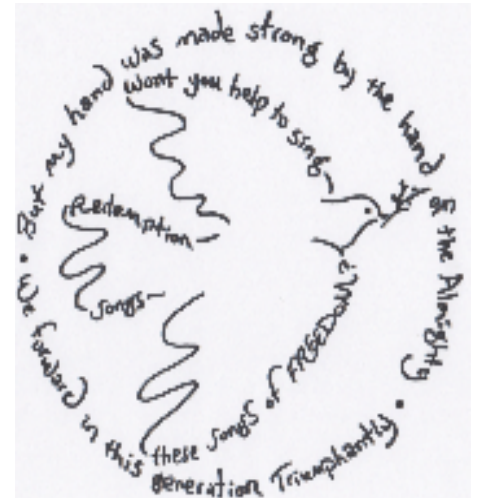 But my hand was made strong by the hand of the Almighty •
We forward in this generation Triumphantly •
Wont you help to sing
these songs of FREEDOM?
Redemption
songs